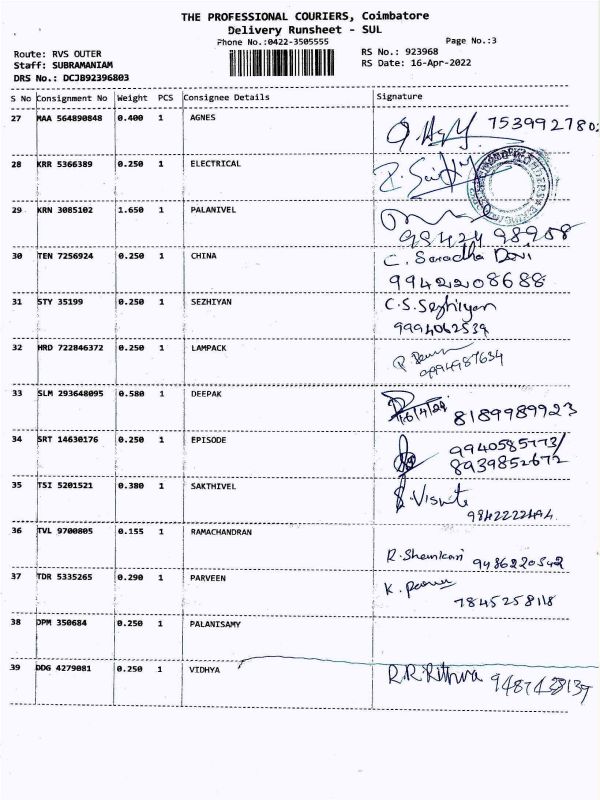 THE PROFESSIONAL COURIERS, Coimbatore
Delivery Runsheet - SUL
Phone No.:0422-3505555
Page No.:3
Route: RVS OUTER
RS No.: 923968
Staff: SUBRAMANIAM
RS Date: 16-Apr-2022
DRS No.: DCJB92396803
S No Consignment No Weight PCS Consignee Details Signature
27 MAA 564890848 0.400 1 AGNES 753992780
28 KRR 5366389 0.250 1 ELECTRICAL
29 KRN 3085102 1.650 1 PALANIVEL
98424 98908
30 TEN 7256924 0.250 1 CHINA C. Saradha Devi
9942208688
31 STY 35199 0.250 1 SEZHIYAN C.S. Sezhiyan
9994062539
32 HRD 722846372 0.250 1 LAMPACK
33 SLM 293648095 0.580 1 DEEPAK 16/4/22 8189989923
34 SRT 14630176 0.250 1 EPISODE 9940585773/
8939852672
35 TSI 5201521 0.380 1 SAKTHIVEL
9842222494
36 TVL 9700805 0.155 1 RAMACHANDRAN
9486220542
37 TDR 5335265 0.290 1 PARVEEN K.
7845258118
38 DPM 350684 0.250 1 PALANISAMY
39 DDG 4279081 0.250 1 VIDHYA R.R. Rithva